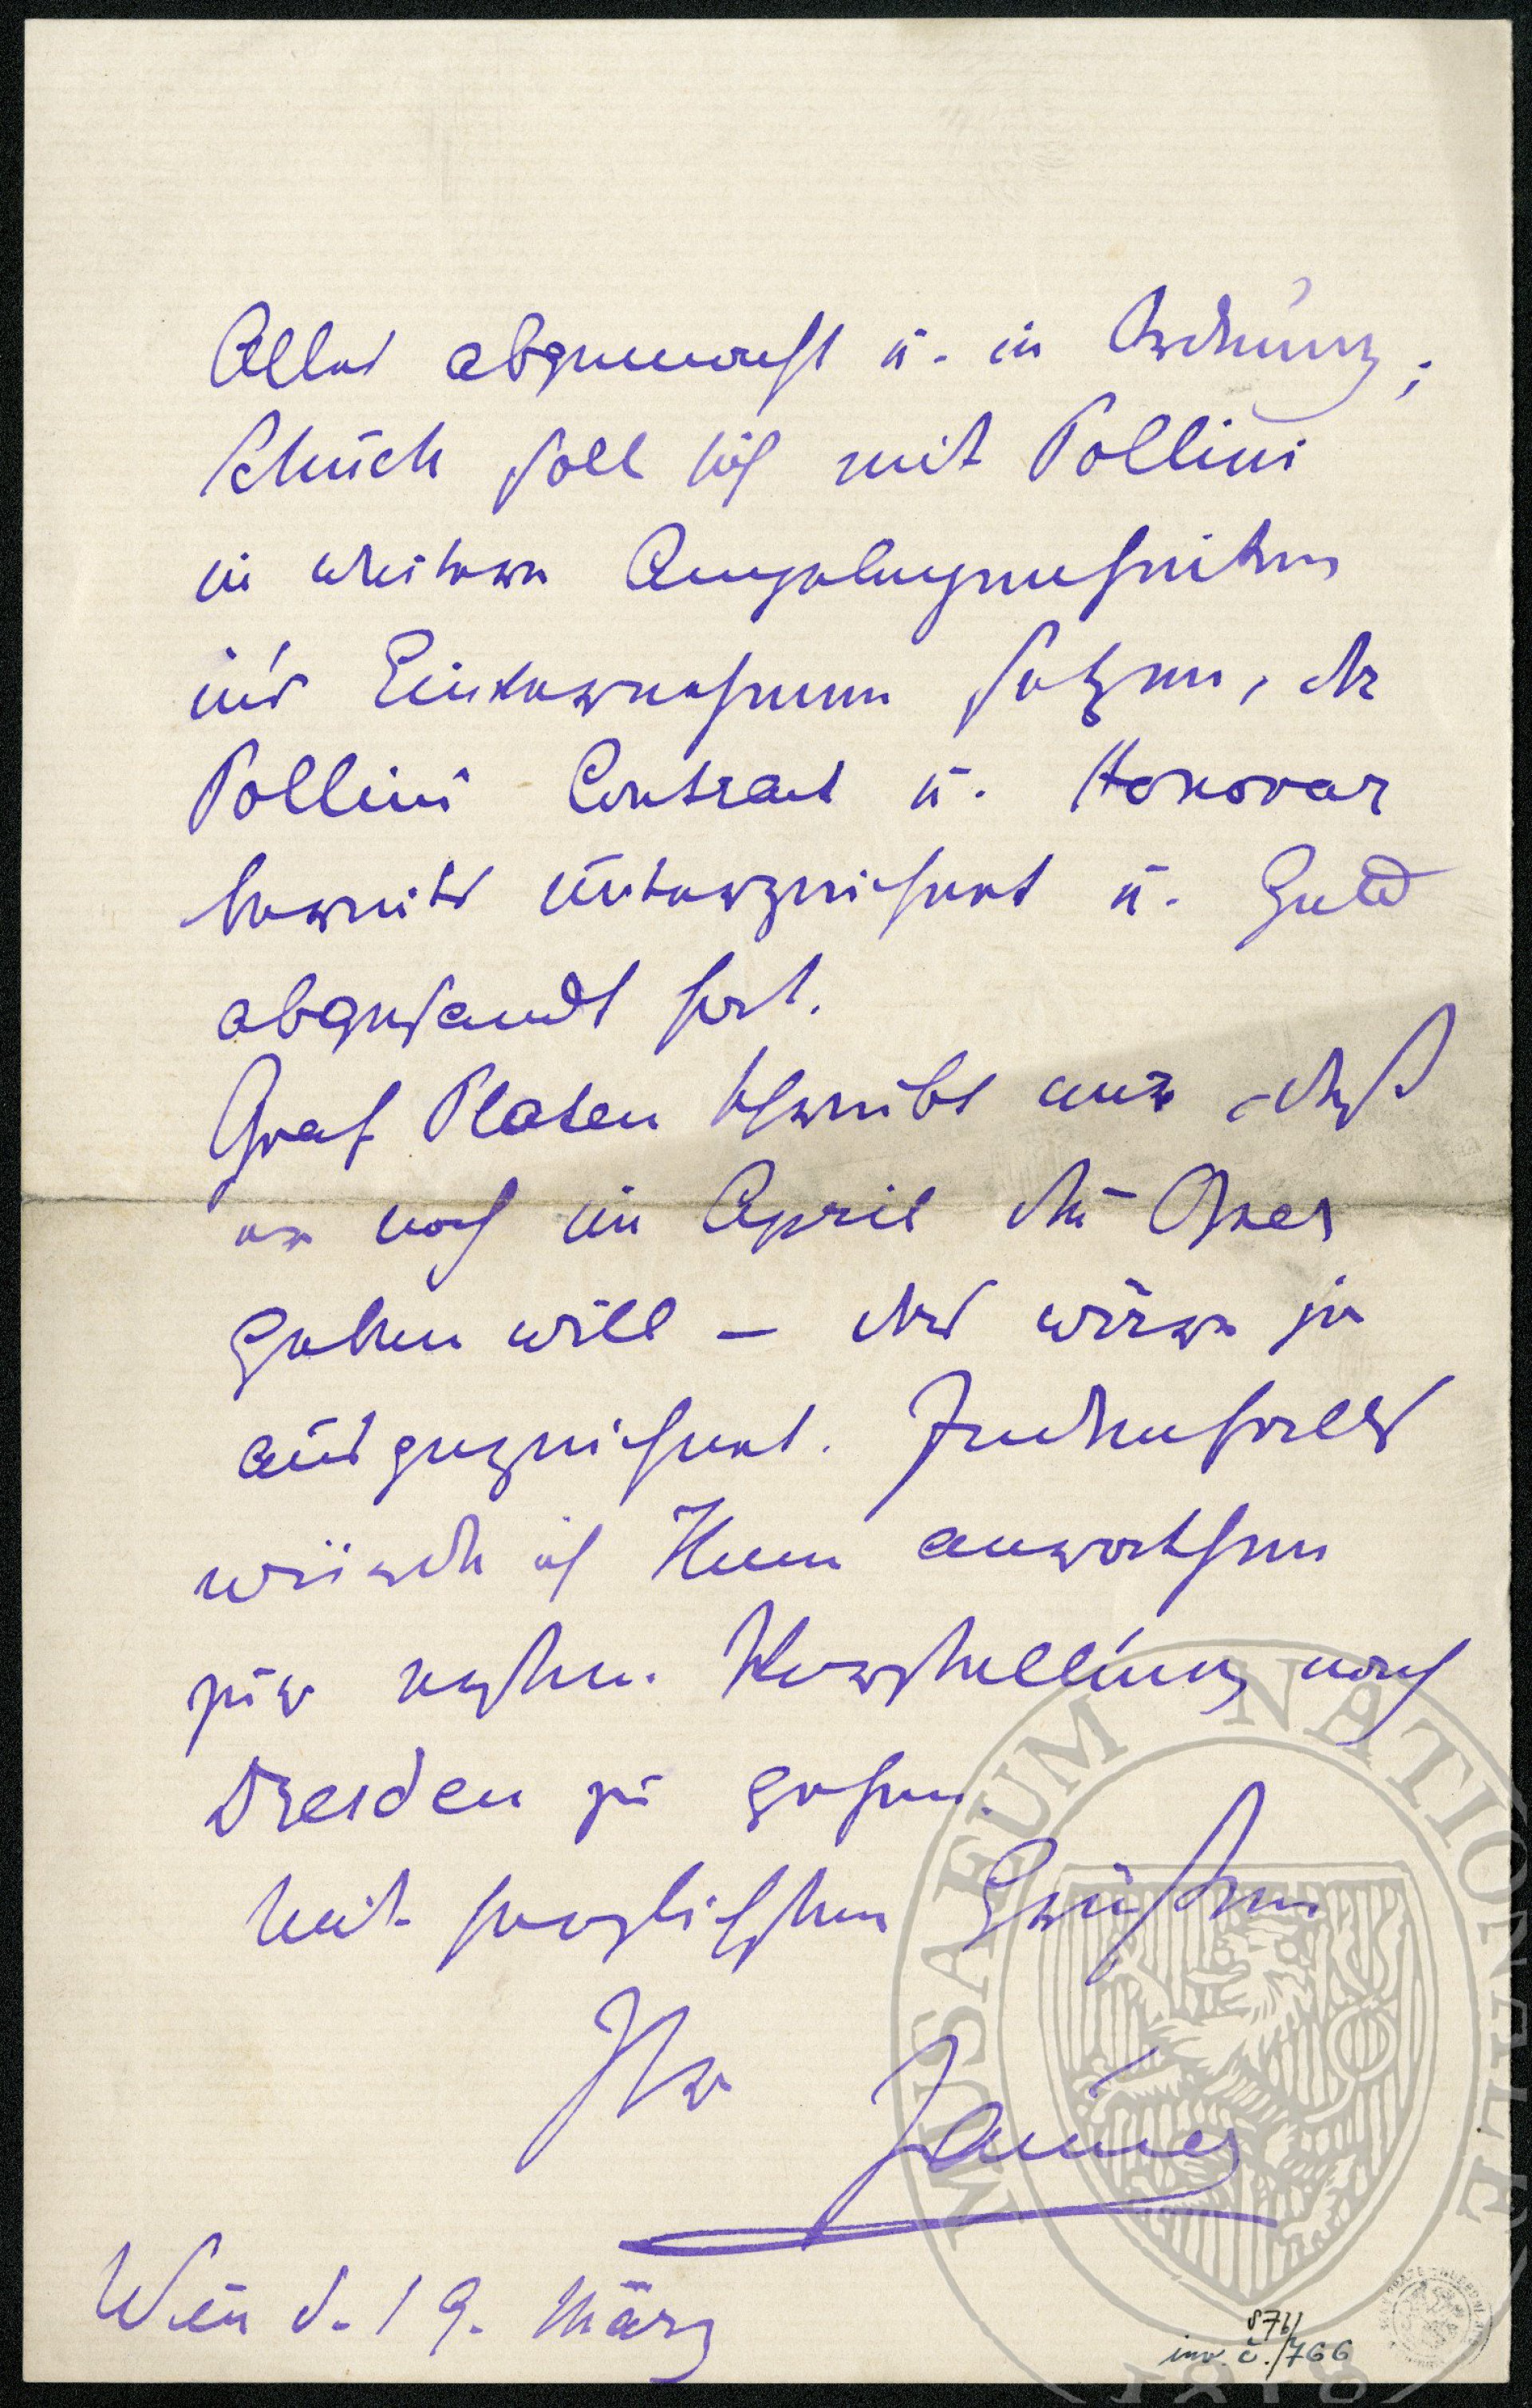 Alles abgemacht u. in Ordnung;
Schuch soll sich mit Pollini
in weitern Angelegenheiten
in's Einvernehmen setzen, da
Pollini Contract u. Honorar
bereits unterzeichnet u. Geld
abgesandt hat.
Graf Platen schreibt mir daß
er noch im April die Oper
geben will – das wäre ja
ausgezeichnet. Jedenfalls
würde ich Ihnen anrathen
zur ersten Vorstellung nach
Dresden zu gehen.
Mit herzlichsten Grüßen
Ihr Jauner
Wien d. 19. März
MUSAEUM NATIONALE
1818
876/
inv. č./766